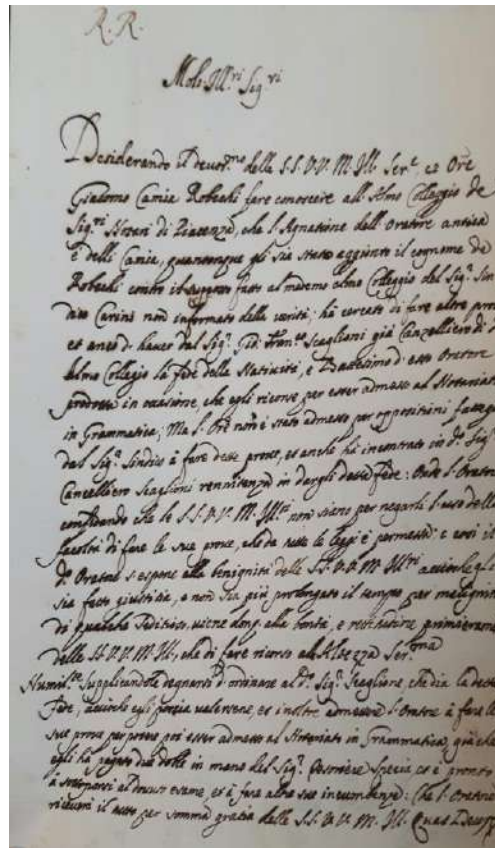 R. R.
Molt. Ill.ri Sig.ri
Desiderando il devot.mo delle S.S. V.V. M. Ill. Ser.e, et Ore
Giacomo Camia Robachi fare conoscere all'Almo Colleggio de
Sig.ri Notari di Piacenza, che l'Agnatione dell'Oratore antica
è delli Camia, quantonque gli sia stato aggionto il cognome de
Robachi contro il fatto al medemo almo Colleggio del Sig.r Sin
dico Carini non informato della verità; hà cercato di fare altre prov
et anco d'haver dal Sig.r Gio. Fran.co Scaglioni già Canzelliero di
Almo Collegio la fede della Natività, e Battesimo d'esso Oratore
prodotta in occasione, che egli ricorse per esser admesso al Notariato
in Grammatica; Ma l'Ore non è stato admesso per oppositioni fatte
dal Sig.r Sindico à fare dette prove, et anche hà incontrato in d.o Sig.r
Cancelliero Scaglioni rennitenza in dargli detta fede: Onde l'Oratore
confidando che le S.S. V.V. M. Ill.ri non siano per negarli l'uso delle
facoltà di fare le sue prove, che da tutte le leggi è permessa; e così il
d.o Oratore s'espone alla benignità delle S.S. V.V. M. Ill.ri acciò le
sia fatto giustitia, e non sia più prolongato il tempo per malignità
di qualche viene dong. alla bontà, e
delle SS. V.V. M. Ill., che di fare ricorso all'Altezza Ser.ma
Humil.te Supplicandole degnarsi d'ordinare al d.o Sig.r Scaglione, che dia la detta
Fede, acciochè egli possa valersene, et inoltre admettere l'Oratore à fare le
sue prove per potere poi esser admesso al Notariato in Grammatica, già che
egli hà pagato due doble in mano del Sig.r Spezia, et è pronto
à sottoporsi al dovuto esame, et à fare altre sue incombenze: Che l'Oratore
riceverà il tutto per somma gratia delle S.S. V.V. M. Ill. Quas Deus